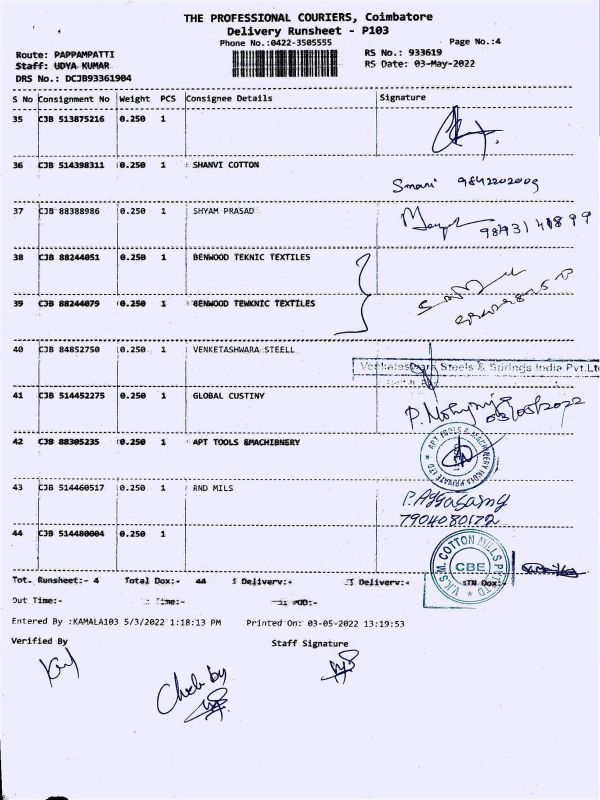 THE PROFESSIONAL COURIERS, Coimbatore
Delivery Runsheet - P103
Phone No.:0422-3505555
Page No.:4
Route: PAPPAMPATTI
RS No.: 933619
Staff: UDYA KUMAR
RS Date: 03-May-2022
DRS No.: DCJB93361904
S No Consignment No Weight PCS Consignee Details Signature
35 CJB 513875216 0.250 1
36 CJB 514398311 0.250 1 SHANVI COTTON
37 CJB 88388986 0.250 1 SHYAM PRASAD
38 CJB 88244051 0.250 1 BENWOOD TEKNIC TEXTILES
39 CJB 88244079 0.250 1 BENWOOD TEWKNIC TEXTILES
40 CJB 84852750 0.250 1 VENKETASHWARA STEELL
Venkateswara Steels & Springs India Pvt.Lt
41 CJB 514452275 0.250 1 GLOBAL CUSTINY
03/05/2022
42 CJB 88305235 0.250 1 APT TOOLS &MACHIBNERY
APT TOOLS & MACHINERY INDIA PRIVATE LTD
43 CJB 514460517 0.250 1 RND MILS
7904080172
44 CJB 514480004 0.250 1
V.K.S.M. COTTON MILLS PVT LTD
CBE
Tot. Runsheet:- 4 Total Dox:- 44 Delivery:- Delivery:- Dox:-
Out Time:- Time:-
Entered By :KAMALA103 5/3/2022 1:18:13 PM Printed On: 03-05-2022 13:19:53
Verified By Staff Signature